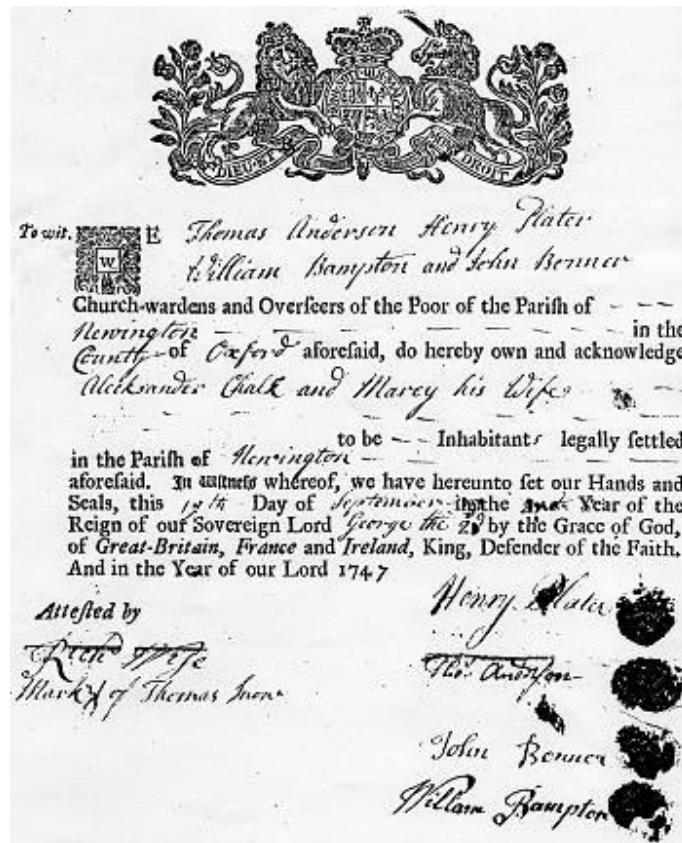 DIEU ET DROIT
To wit. WE Thomas Anderson Henry Plater
William Bampton and John Benner
Church-wardens and Overſeers of the Poor of the Pariſh of
Newington in the
County of Oxford aforeſaid, do hereby own and acknowledge
Alecksander Chalk and Marey his Wife
to be Inhabitants legally ſettled
in the Pariſh of Newington
aforeſaid. In Witneſs whereof, we have hereunto ſet our Hands and
Seals, this Day of September in the Year of the
Reign of our Sovereign Lord George the 2d by the Grace of God,
of Great-Britain, France and Ireland, King, Defender of the Faith.
And in the Year of our Lord 1747
Henry Plater
Atteſted by
Richd Wiſe
Thos. Anderſon
Mark X of Thomas
John Benner
William Bampton